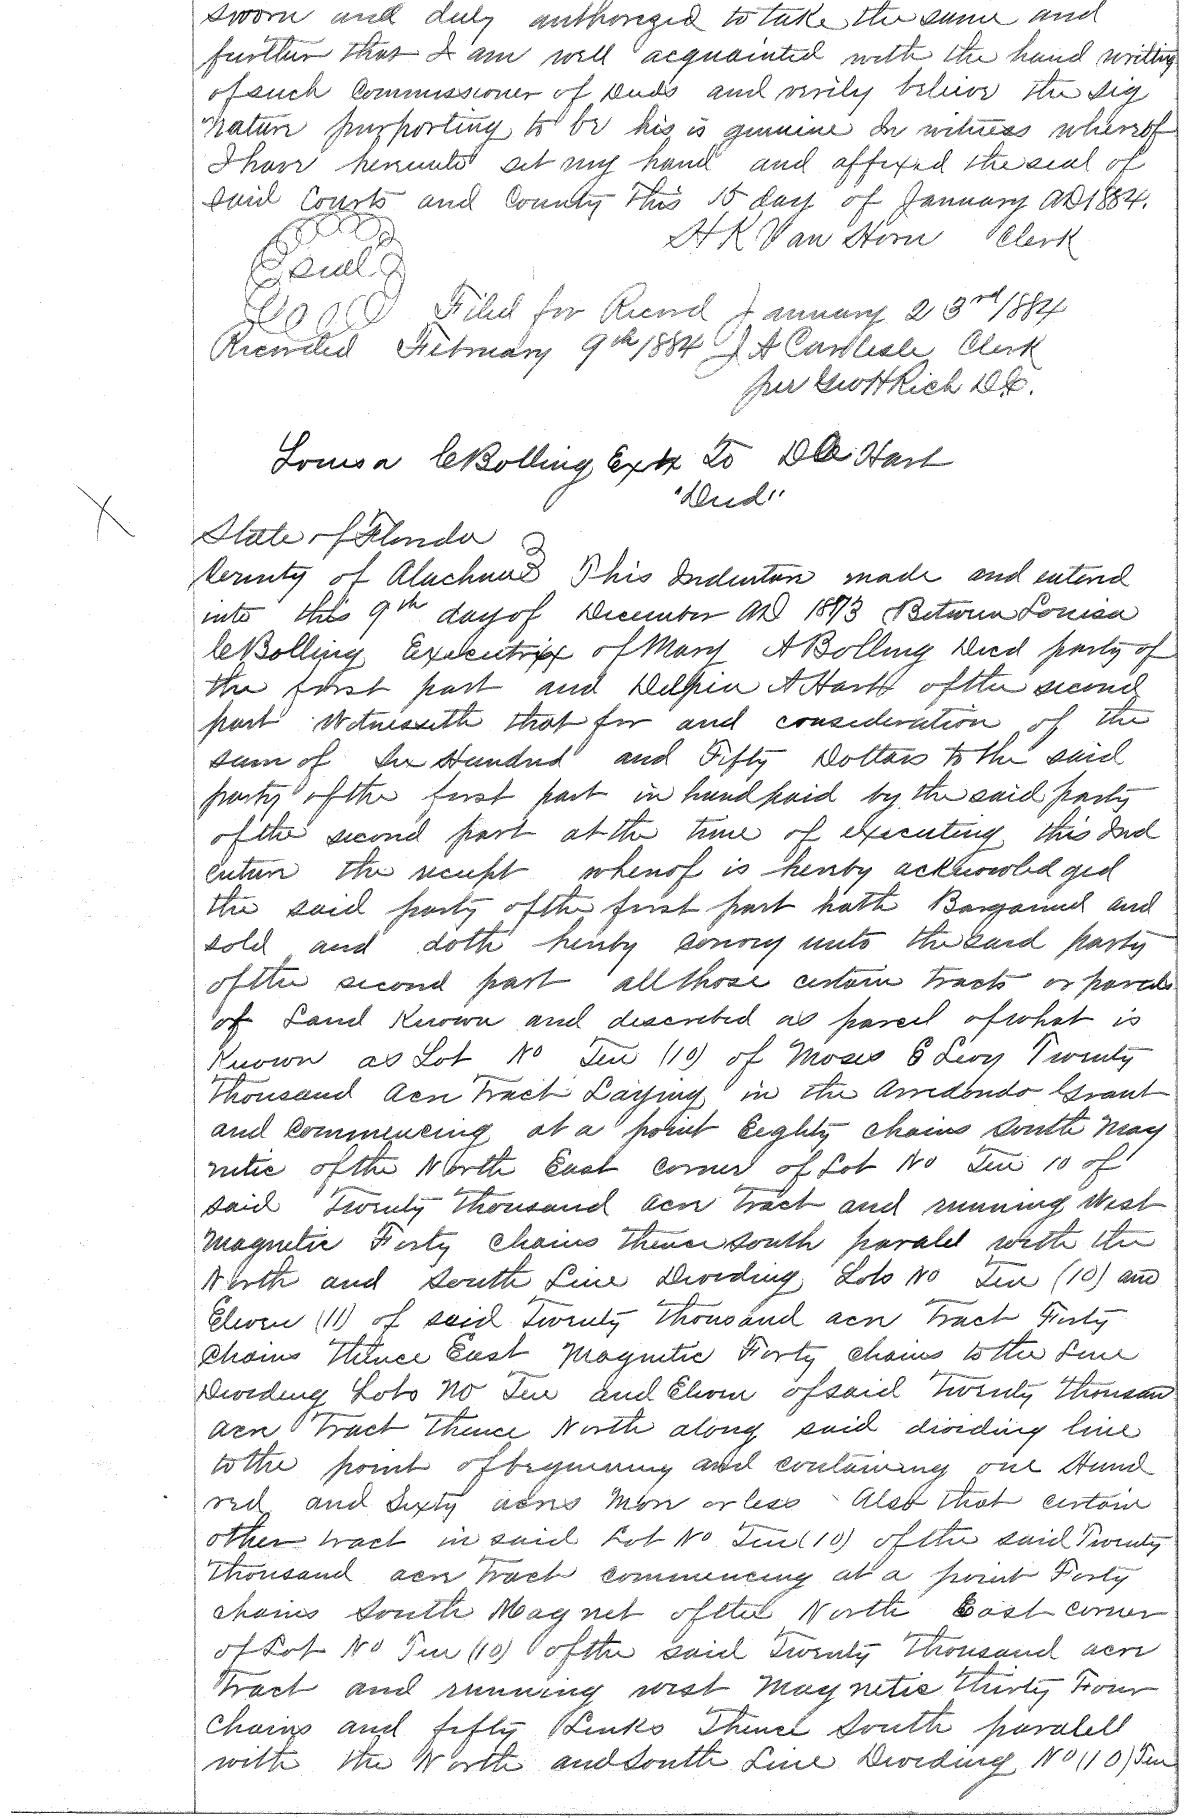 sworn and duly authorized to take the same and
further that I am well acquainted with the hand writing
of such Commissioner of Deeds and verily believe the sig
nature purporting to be his is genuine In witness whereof
I have hereunto set my hand and affixed the seal of
said Courts and County this 15 day of January AD 1884.
H K Van Horn Clerk
seal
Filed for Record January 23rd/1884
Recorded February 9th/1884 J A Carlisle Clerk
per Geo H Rich D.C.
Louisa C Bolling Extx To D A Hart
"Deed"
X
State of Florida
County of Alachua This Indenture made and entered
into this 9th day of December AD 1873 Between Louisa
C Bolling Executrix of Mary A Bolling Decd party of
the first part and A Hart of the second
part Witnesseth that for and consideration of the
sum of Six Hundred and Fifty Dollars to the said
party of the first part in hand paid by the said party
of the second part at the time of executing this Ind
enture the receipt whereof is hereby acknowledged
the said party of the first part hath Bargained and
sold and doth hereby convey unto the said party
of the second part all those certain tracts or parcels
of Land Known and described as parcel of what is
Known as Lot No Ten (10) of Moses E Levy Twenty
Thousand Acre Tract Laying in the Arredondo Grant
and Commencing at a point Eighty chains South Mag
netic of the North East corner of Lot No Ten 10 of
said Twenty Thousand acre Tract and running West
Magnetic Forty chains thence South paralel with the
North and South Line Dividing Lots No Ten (10) and
Eleven (11) of said Twenty Thousand acre Tract Forty
Chains Thence East Magnetic Forty chains to the Line
Dividing Lots No Ten and Eleven of said Twenty Thousan
acre Tract Thence North along said dividing line
to the point of begynning and containing one Hund
red and Sixty acres More or less Also that certain
other tract in said Lot No Ten (10) of the said Twenty
Thousand acre Tract commencing at a point Forty
chains South Magnet of the North East corner
of Lot No Ten (10) of the said Twenty Thousand acre
Tract and running west Magnetic Thirty Four
Chains and fifty Links Thence South paralell
with the North and South Line Dividing No (10) Ten